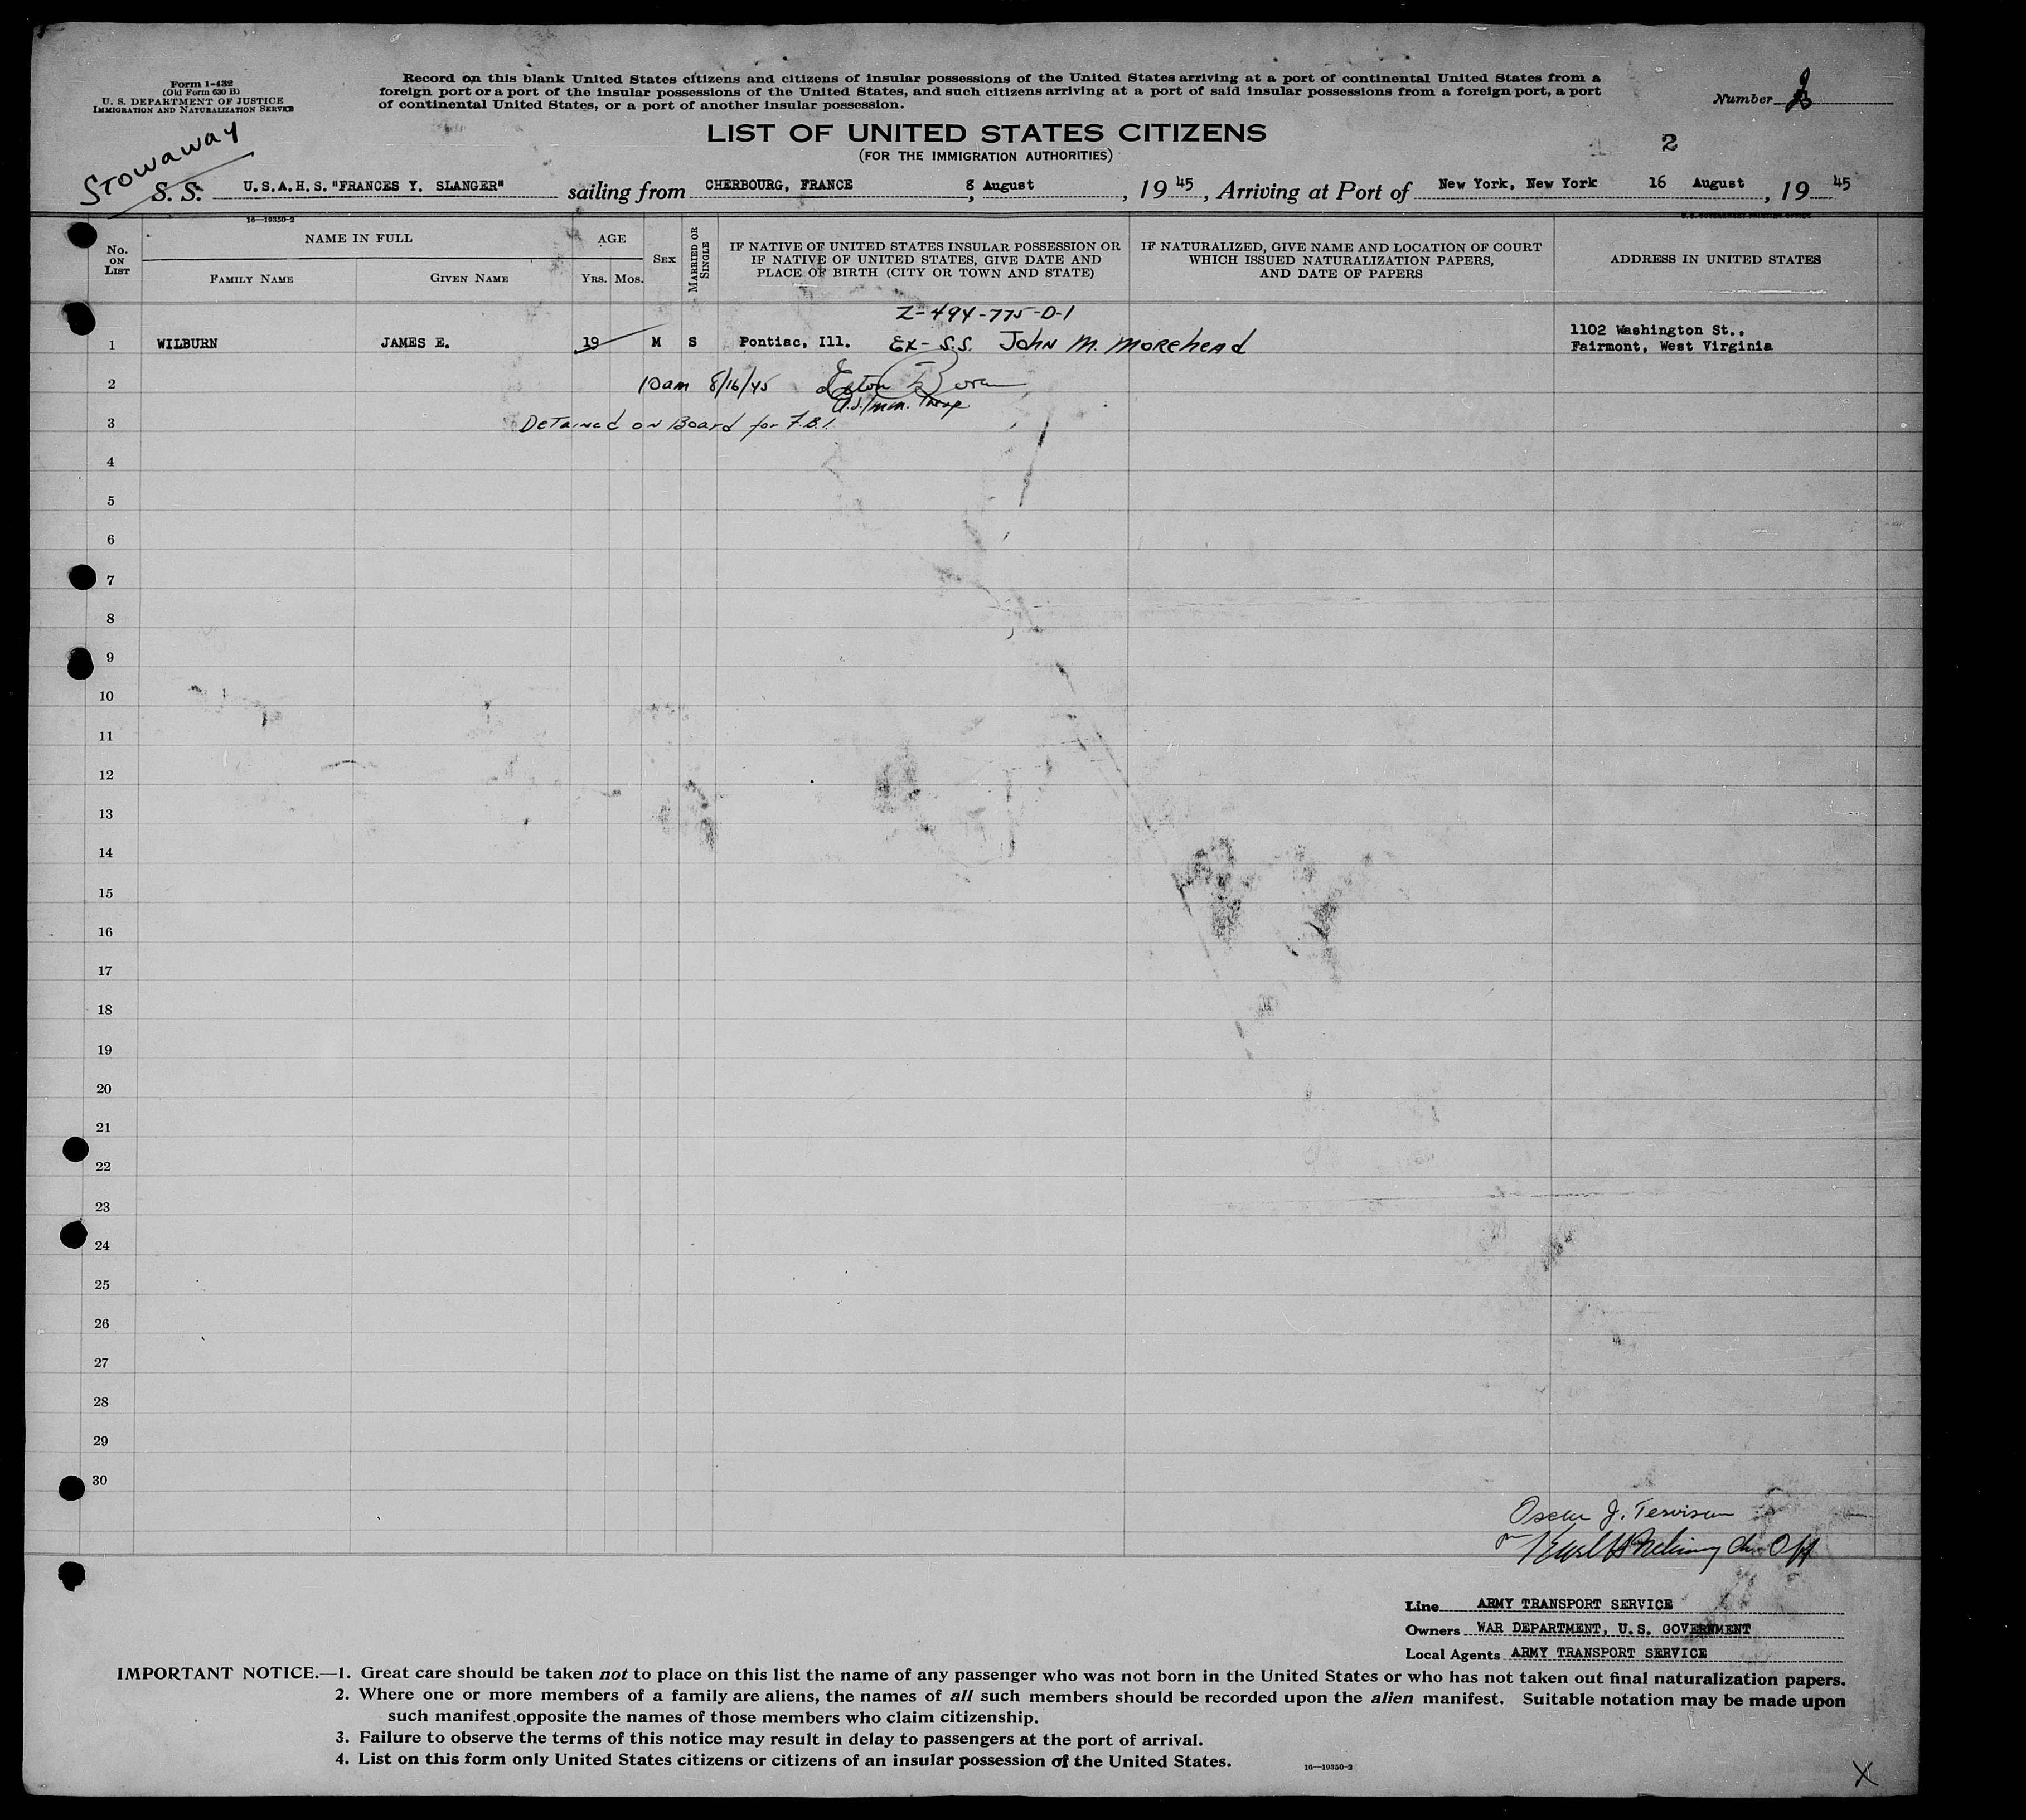 Form I-432
(Old Form 630 B)
U. S. DEPARTMENT OF JUSTICE
IMMIGRATION AND NATURALIZATION SERVICE
Record on this blank United States citizens and citizens of insular possessions of the United States arriving at a port of continental United States from a
foreign port or a port of the insular possessions of the United States, and such citizens arriving at a port of said insular possessions from a foreign port, a port
of continental United States, or a port of another insular possession.
Number
LIST OF UNITED STATES CITIZENS
(FOR THE IMMIGRATION AUTHORITIES)
2
Stowaway
S. S. U.S.A.H.S. "FRANCES Y. SLANGER" sailing from CHERBOURG, FRANCE 8 August, 1945, Arriving at Port of New York, New York 16 August, 1945
16—19350-2
No. ON LIST
NAME IN FULL
FAMILY NAME GIVEN NAME
AGE
YRS. MOS.
SEX
MARRIED OR SINGLE
IF NATIVE OF UNITED STATES INSULAR POSSESSION OR
IF NATIVE OF UNITED STATES, GIVE DATE AND
PLACE OF BIRTH (CITY OR TOWN AND STATE)
IF NATURALIZED, GIVE NAME AND LOCATION OF COURT
WHICH ISSUED NATURALIZATION PAPERS,
AND DATE OF PAPERS
ADDRESS IN UNITED STATES
Z-494-775-D-1
1 WILBURN JAMES E. 19 M S Pontiac, Ill. Ex- S.S. John M. Morehead 1102 Washington St.,
Fairmont, West Virginia
2 10am 8/16/45
3 Detained on Board for F.B.I.
4
5
6
7
8
9
10
11
12
13
14
15
16
17
18
19
20
21
22
23
24
25
26
27
28
29
30
Oscar J.
Ch. Off
Line ARMY TRANSPORT SERVICE
Owners WAR DEPARTMENT, U.S. GOVERNMENT
Local Agents ARMY TRANSPORT SERVICE
IMPORTANT NOTICE.—1. Great care should be taken not to place on this list the name of any passenger who was not born in the United States or who has not taken out final naturalization papers.
2. Where one or more members of a family are aliens, the names of all such members should be recorded upon the alien manifest. Suitable notation may be made upon
such manifest opposite the names of those members who claim citizenship.
3. Failure to observe the terms of this notice may result in delay to passengers at the port of arrival.
4. List on this form only United States citizens or citizens of an insular possession of the United States.
16—19350-2
X